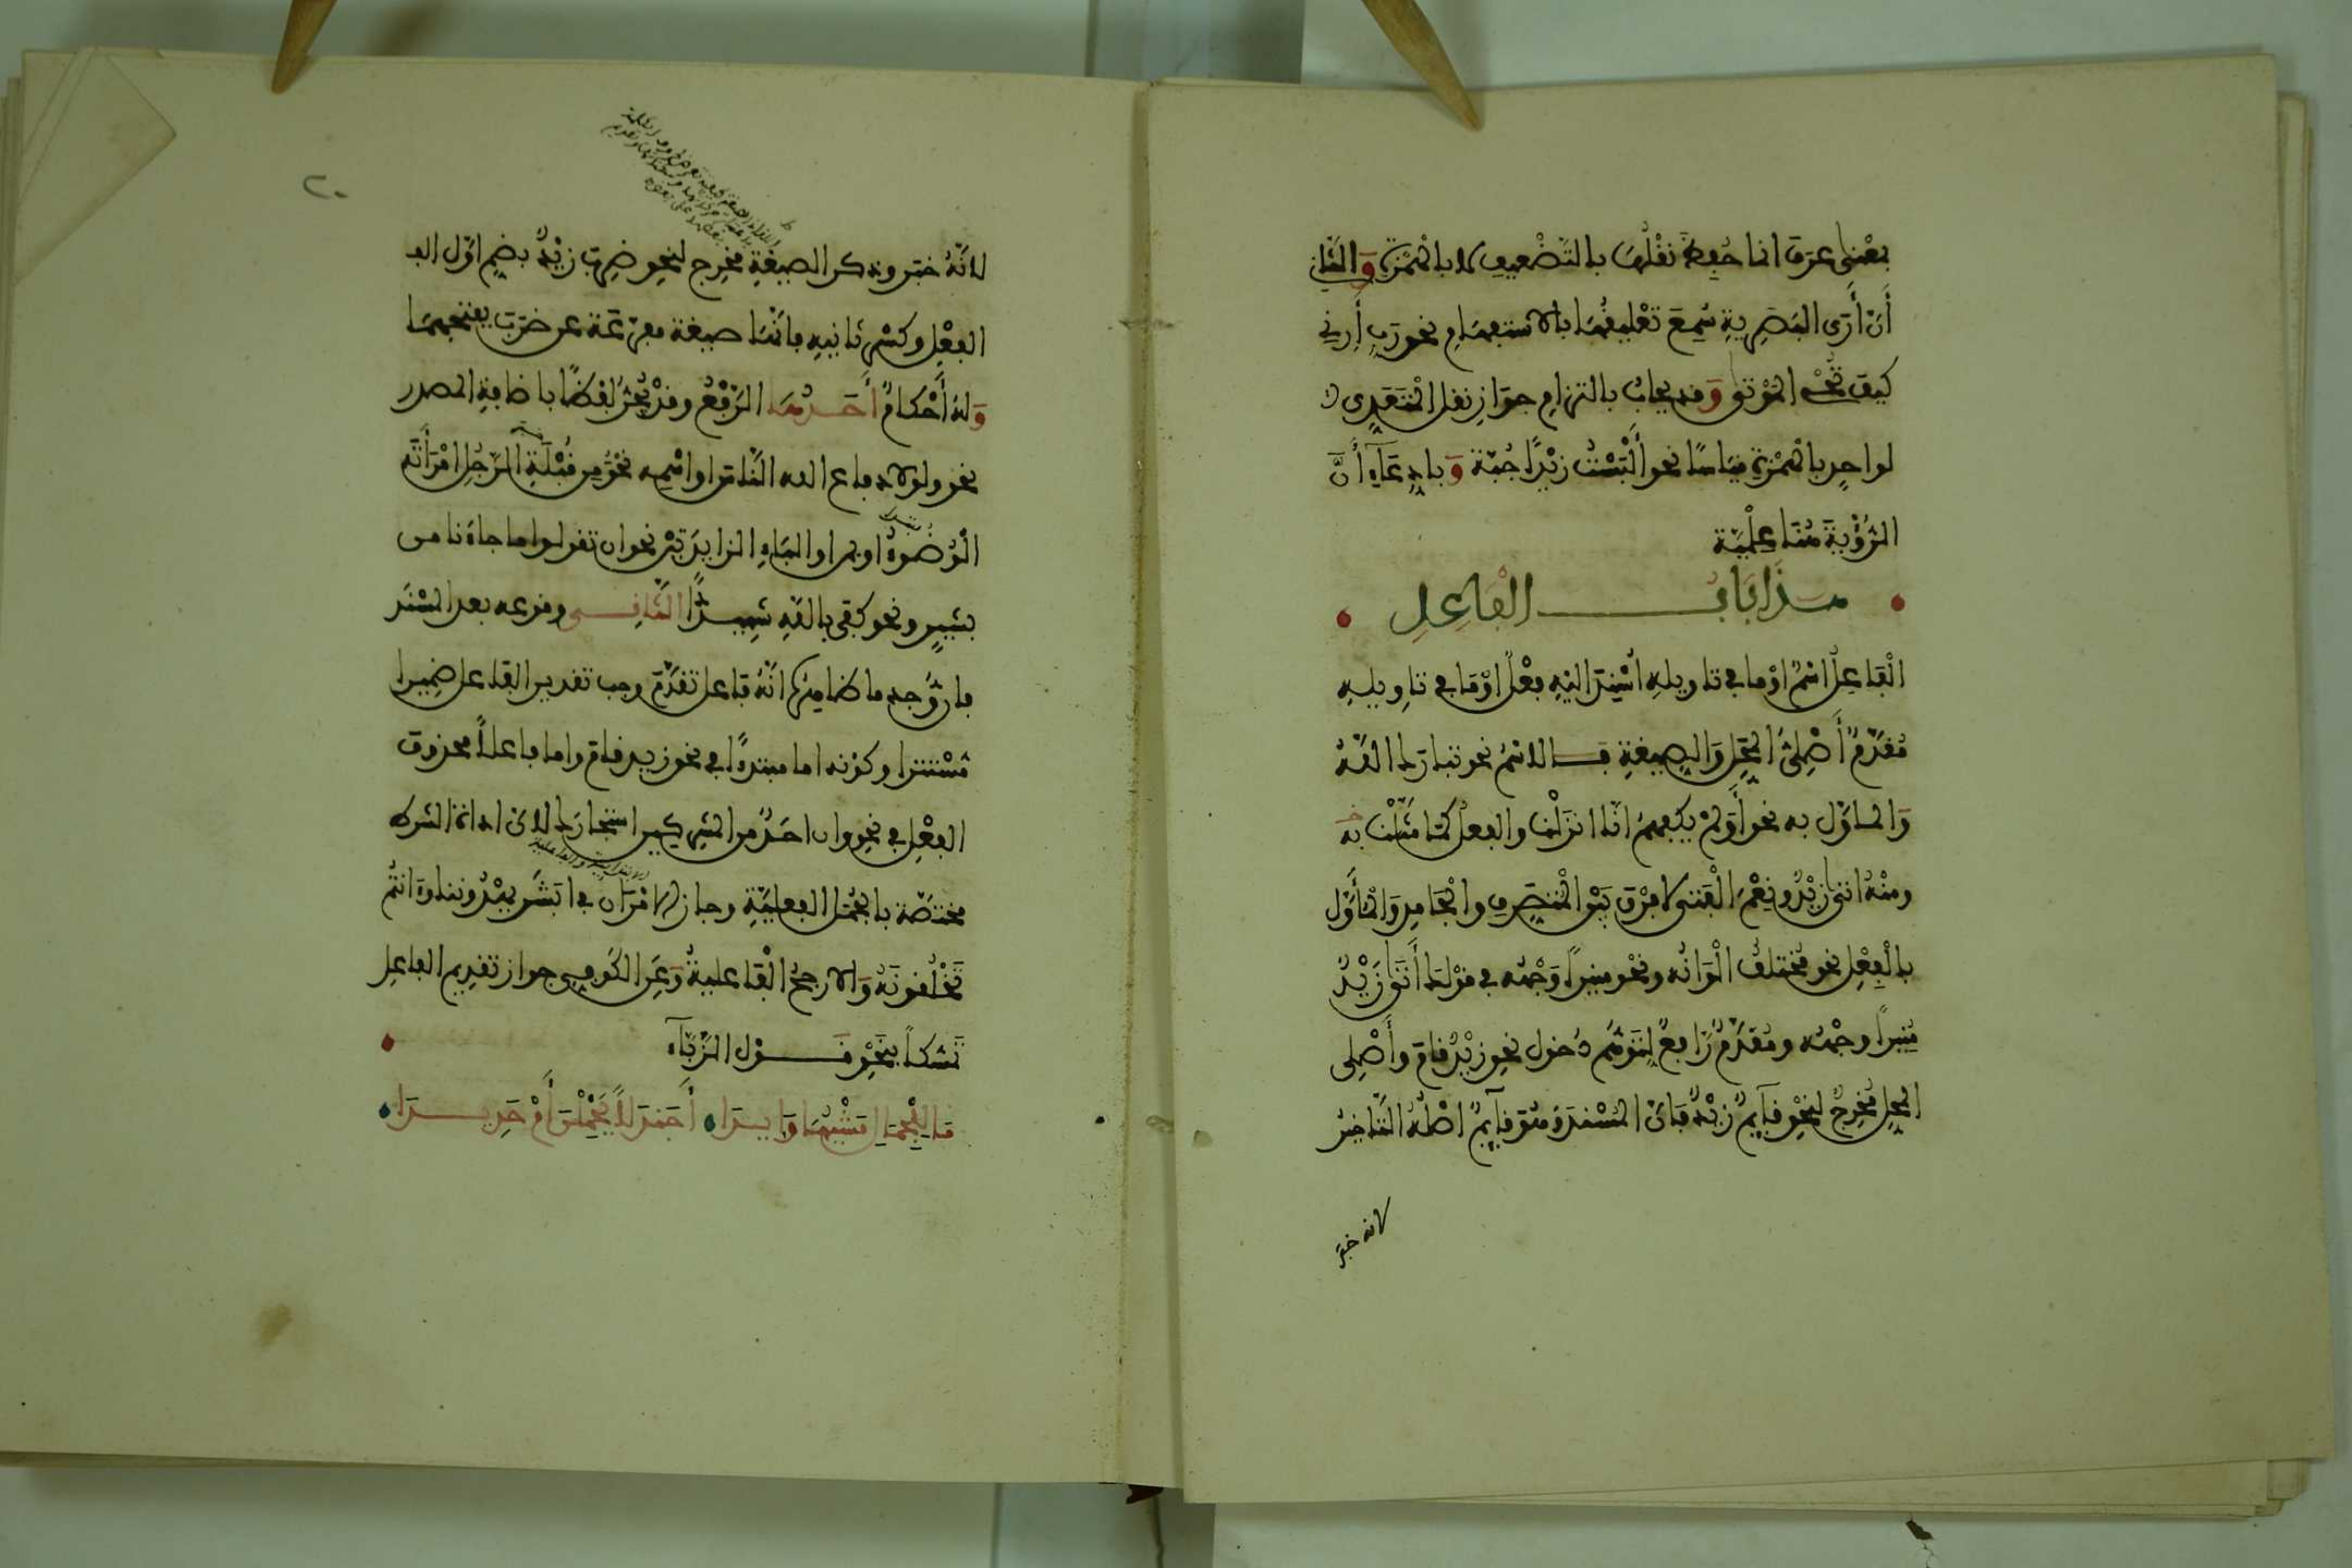 بمعنى عرف انما حُفِظ نقْلُها بالتَّضْعيف لا بالهمْزة وَالثاني
أَنْ أَرَى البَصَرِية سُمِعَ تعْليقُها بالاستفهام نحو رَبِّ أَرِني
كيف تُحْيِ الموْتى وَقد يجابُ بالتزام جوَازِ نقل المتَعَدِى لا
لواحِدٍ بالهمْزة قياسًا نحو أَلْبَسْتُ زيْدًا جُبّة وَبادِعَآءِ أَنَّ
الرُّؤْيَةَ هُنَا عِلْمِيّة
هَذَا بَابُ الفَاعِلِ
الْفاعِلُ اسْمٌ اوْ ما في تاويلِهِ اُسْنِدَ اليْهِ فِعْلٌ اوْ مَا في تاوِيلِهِ
مُقَدَّمٌ أَصْلِىُّ المَحَلِّ وَالصِيغةِ فــالاسْمُ نحو تبارَك اللّهُ
وَالماوّل به نحو أَوَلَمْ يكْفِهِمُ انّا انزَلْنا والفعلُ كمَا مَثّلْنا به
ومنْهُ اتى زيْدٌ ونِعْمَ الْفَتى لا فرْق بَيْن المتصرِف والْجامِد وَالْمأَوَّل
بالْفِعْل نحو مُختلفٌ الْوَانُه ونحْو منيرًا وَجْهُه في قوْلِك أَتَى زَيْدٌ
مُنِيرًا وجْهُه ومُقَدَّمٌ رَافعٌ لِتَوَهُّمِ دُخول نحوِ زيْدٌ قامَ وأَصْلِى
المحلِ مُخرِجٌ لنحْوِ قآيمٌ زيْدٌ فانّ المُسْنَدَ وهُوَ قآيمٌ اصْلُهُ التّاخيرُ
لانه خبر
٢٠
لانّهُ خبَر وذكر الصيغةِ مخرِج لنحوِ ضُرِب زيْدٌ بضمِ اوّل الفـ
الفِعْلِ وكسْرِ ثانيهِ فانّهَا صيغة مفرّعَة عن ضَرَب بفتحِهِمَا
وَلهُ أَحْكامٌ أَحَــدُهَــا الرَّفْعُ وقدْ يُجَرُّ لفْظًا باضافةِ المصدر
نحو ولولا دفاع الله النّاسَ او اسْمِه نحْوُ مِن قُبْلَةِ الرّجُلِ امْرَأَتَه
الْوُضُوءُ او بمن او البَاءِ الزايدَتَيْنِ نحو ان تقولوا ما جاءَنا من
بشيرٍ ونحو كفى باللّهِ شهِيــدًا الثّانِــي وقوعه بعد المسْنَد
فان وُجد ما ظاهِرُه انّهُ فاعل تقَدّمَ وجب تقدير الفاعل ضمِيرا
مُسْتترا وكوْنه اما مبتدءًا في نحو زيد قام واما فاعلاً محذوف
الفِعْلِ في نحوِ وان احَدٌ من المشركين استجارَك لانّ اداة الشرط
مختصّة بالجُمَل الفِعليّةِ وجاز الامْرَان في ابَشَر يهْدُوننا وَءَانتُم
تَخْلُقُونَهُ وَالارجحُ الْفاعليةُ وَعَنِ الكُوفِى جواز تقدِيم الفاعِل
تَمَسّكاً بنَحْوِ قَــوْل الزَّبّآء
مَا لِلْجِمَالِ مَشْيُهَا وَئِيــدَا أَجَنْدَلاً يَحْمِلْنَ أَمْ حَدِيــدَا